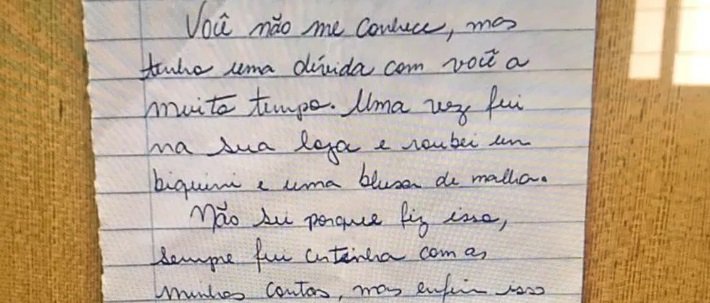 Você não me conhece, mas
tenho uma dívida com você a
muito tempo. Uma vez fui
na sua loja e roubei um
biquini e uma blusa de malha.
Não sei porque fiz isso,
sempre fui certinha com as
minhas contas, mas enfim isso